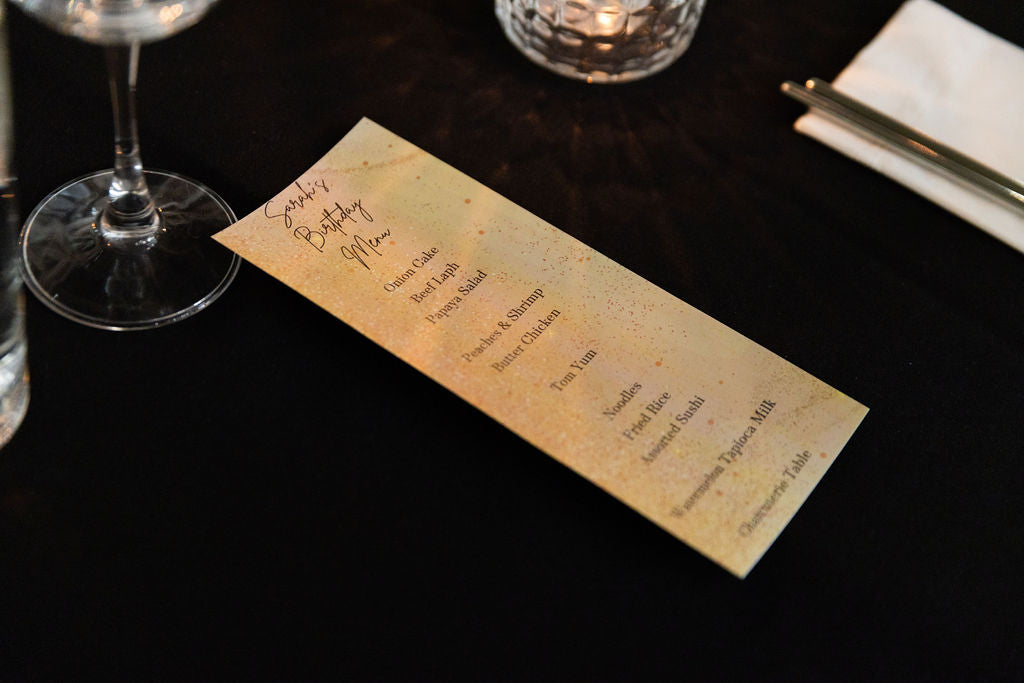 Sarah's
Birthday
Menu
Onion Cake
Beef Laph
Papaya Salad
Peaches & Shrimp
Butter Chicken
Tom Yum
Noodles
Fried Rice
Assorted Sushi
Watermelon Tapioca Milk
Charcuterie Table